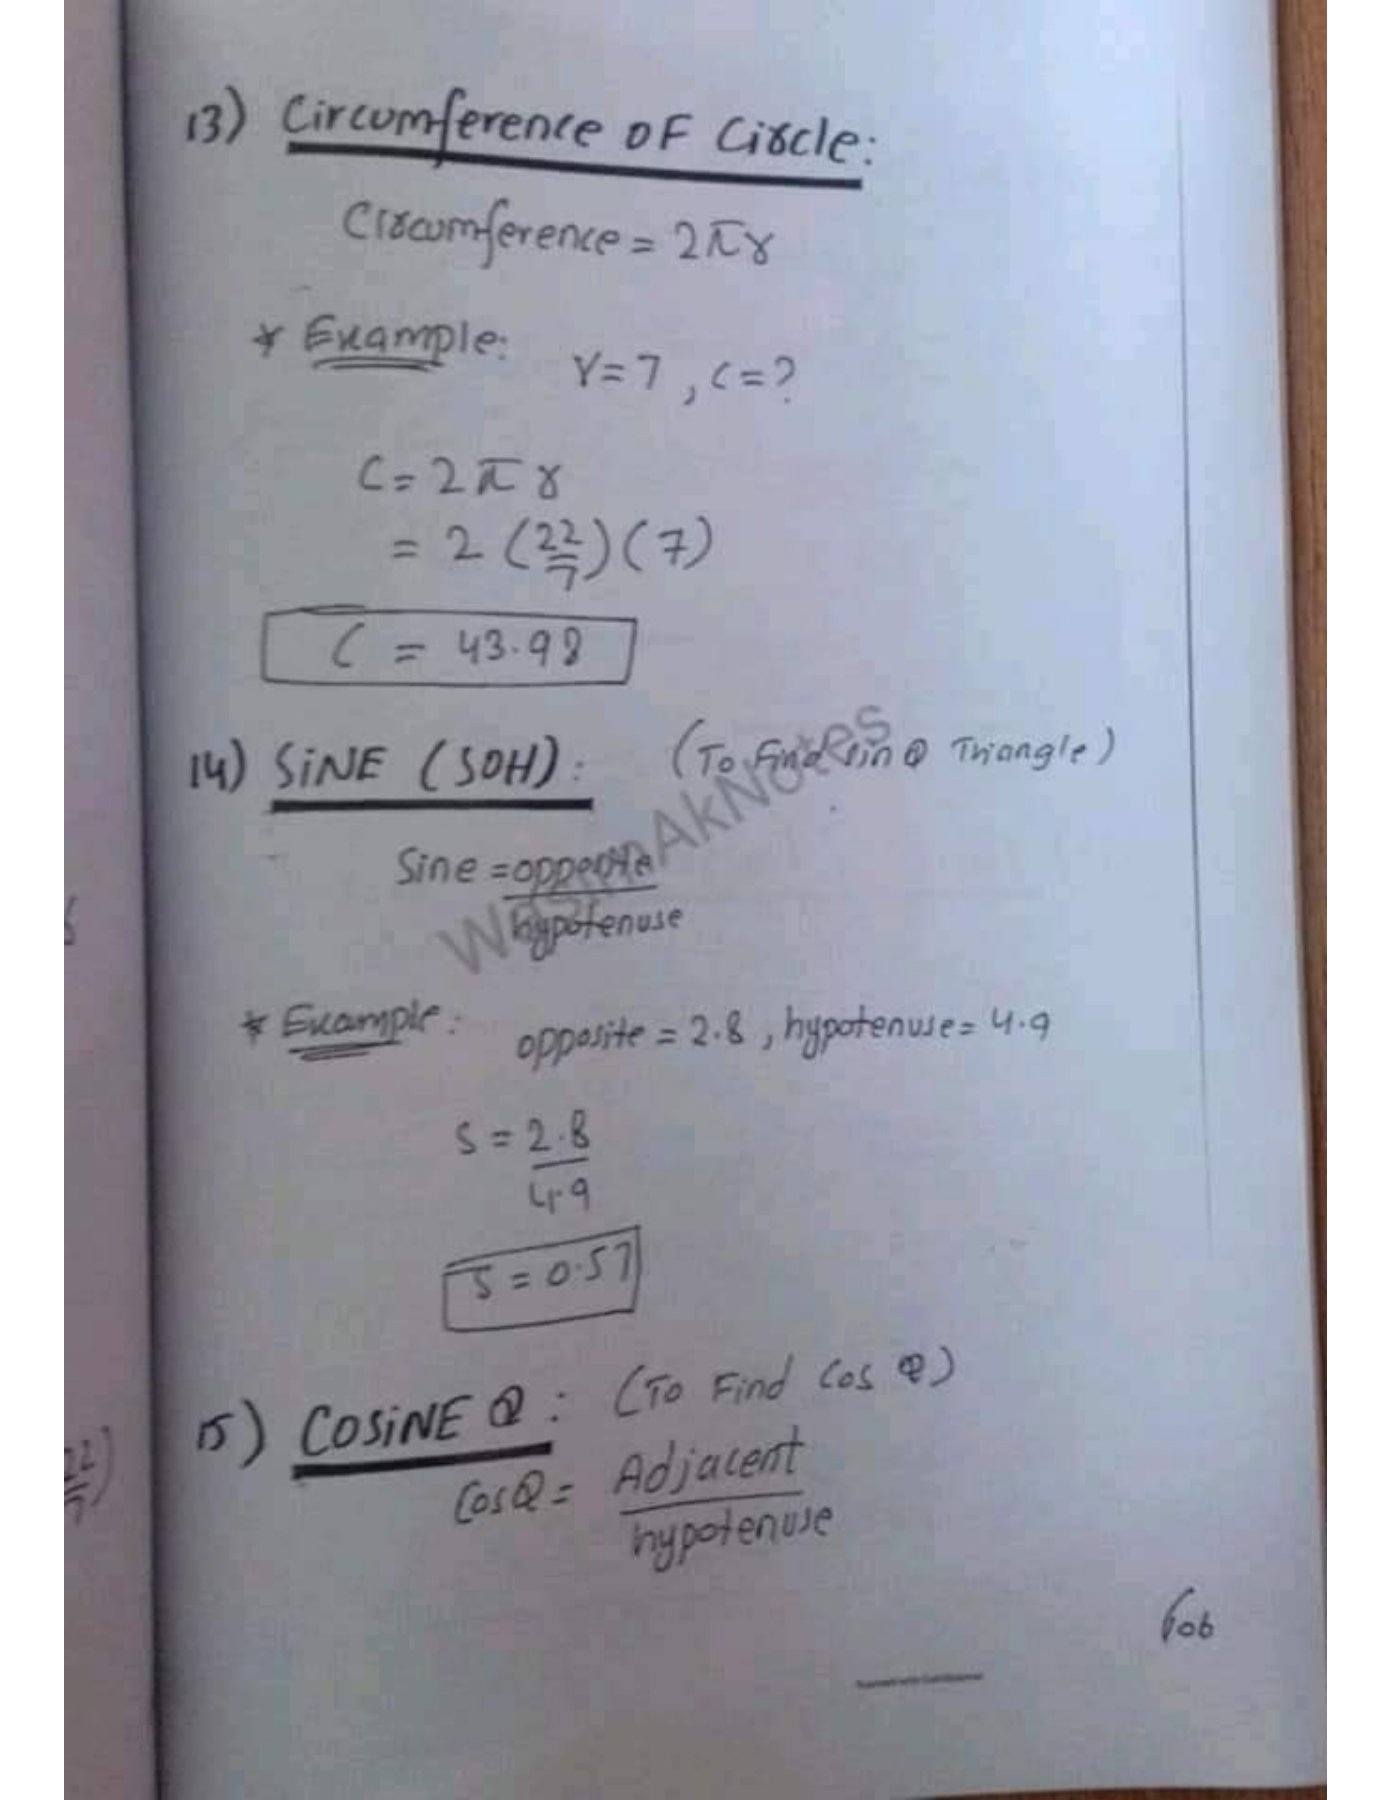 13) Circumference OF Circle:
Circumference = 2πr
* Example:
r=7, C=?
C = 2πr
= 2 (22/7) (7)
C = 43.98
14) SiNE (SOH): (To Find sin θ Triangle)
Sine = opposite
hypotenuse
* Example: opposite = 2.8, hypotenuse = 4.9
S = 2.8
4.9
S = 0.57
15) COSiNE θ: (To Find Cos θ)
Cosθ = Adjacent
hypotenuse
22/7)
AkNotes